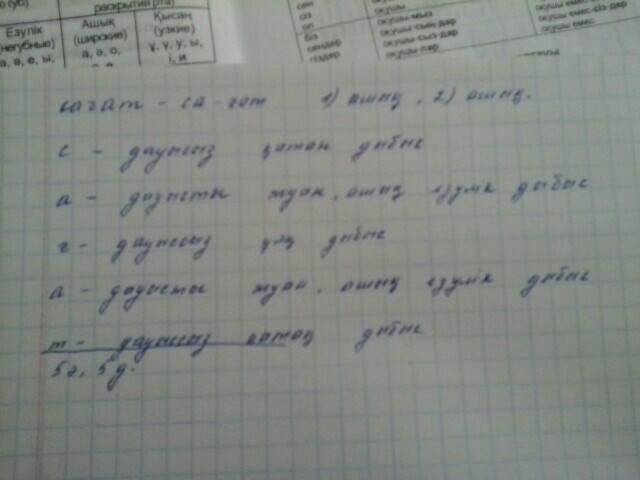 раскрытия рта)
Езулік Ашық Қысаң
(негубные) (широкие) (узкие)
а, ә, е, ы, а, ә, о, ұ, ү, у, ы,
і, и
сен
сіз
ол
біз
сендер
сіздер
оқушы
оқушы-мыз
оқушы-сың-дар
оқушы-сыз-дар
оқушы-лар
оқушы емес-сіз-дер
оқушы емес
сағат - са-ғат 1) ашық, 2) ашық.
с - дауыссыз қатаң дыбыс
а - дауысты жуан, ашық езулік дыбыс
ғ - дауыссыз ұяң дыбыс
а - дауысты жуан, ашық езулік дыбыс
т - дауыссыз қатаң дыбыс
5ә, 5д.